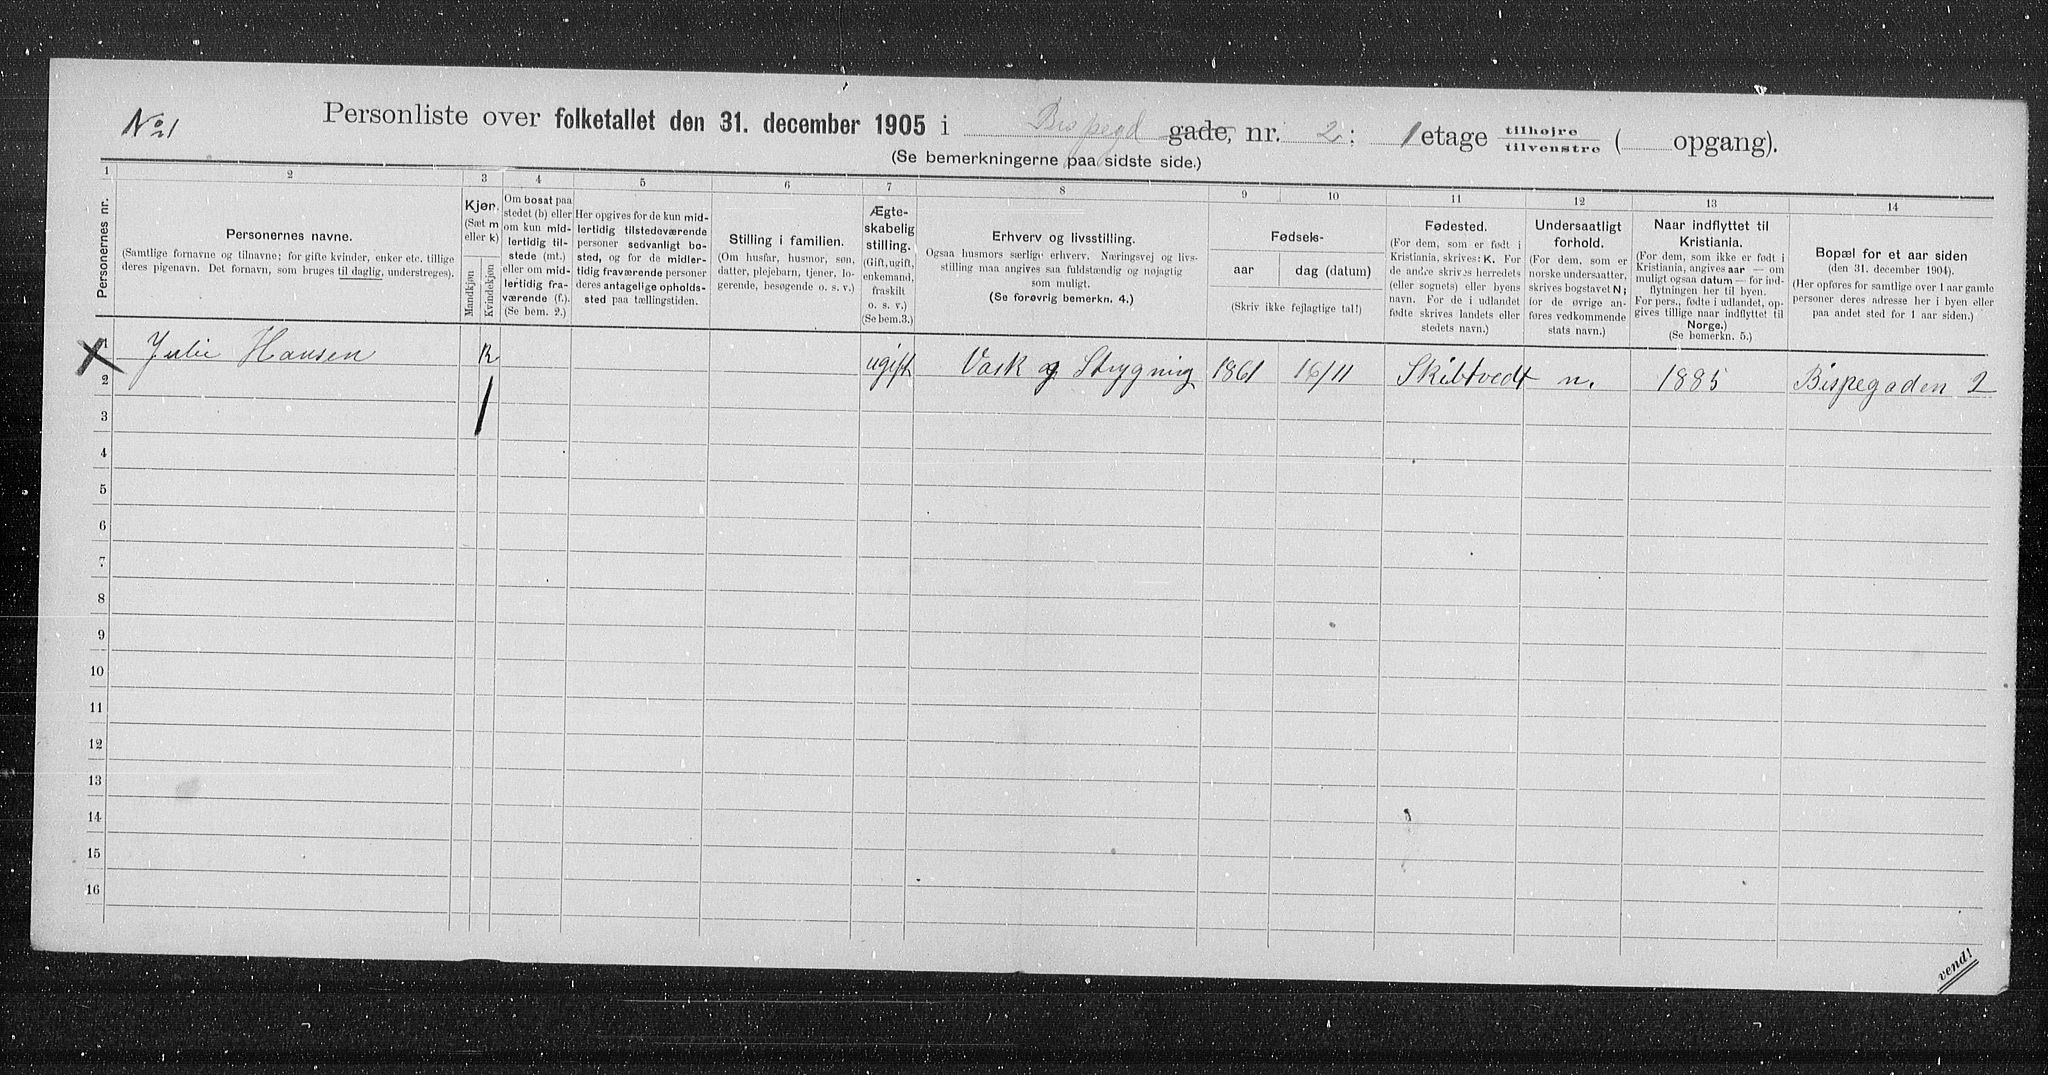 No 1
Personliste over folketallet den 31. december 1905 i Bispegd gade, nr. 2: 1 etage tilhøjre tilvenstre ( opgang).
(Se bemerkningerne paa sidste side.)
1 2 3 4 5 6 7 8 9 10 11 12 13 14
Personernes nr.
Personernes navne.
(Samtlige fornavne og tilnavne; for gifte kvinder, enker etc. tillige
deres pigenavn. Det fornavn, som bruges til daglig, understreges).
Kjøn.
(Sæt m
eller k)
Mandkjøn
Kvindekjøn
Om bosat paa
stedet (b) eller
om kun mid-
lertidig til-
stede (mt.)
eller om mid-
lertidig fra-
værende (f.).
(Se bem. 2.)
Her opgives for de kun mid-
lertidig tilstedeværende
personer sedvanligt bo-
sted, og for de midler-
tidig fraværende personer
deres antagelige opholds-
sted paa tællingstiden.
Stilling i familien.
(Om husfar, husmor, søn,
datter, plejebarn, tjener, lo-
gerende, besøgende o. s. v.)
Ægte-
skabelig
stilling.
(Gift, ugift,
enkemand,
fraskilt
o. s. v.)
(Se bem.3.)
Erhverv og livsstilling.
Ogsaa husmors særlige erhverv. Næringsvej og livs-
stilling maa angives saa fuldstændig og nøjagtig
som muligt.
(Se forøvrig bemerkn. 4.)
Fødsels-
aar
dag (datum)
(Skriv ikke fejlagtige tal!)
Fødested.
(For dem, som er født i
Kristiania, skrives: K. For
de andre skrives herredets
(eller sognets) eller byens
navn. For de i udlandet
fødte skrives landets eller
stedets navn.)
Undersaatligt
forhold.
(For dem, som er
norske undersaatter,
skrives bogstavet N;
for de øvrige an-
føres vedkommende
stats navn.)
Naar indflyttet til
Kristiania.
(For dem, som ikke er født i
Kristiania, angives aar — om
muligt ogsaa datum — for ind-
flytningen her til byen.
For pers., fødte i udlandet, op-
gives tillige naar indflyttet til
Norge.)
(Se bemerkn. 5.)
Bopæl for et aar siden
(den 31. december 1904).
(Her opføres for samtlige over 1 aar gamle
personer deres adresse her i byen eller
paa andet sted for 1 aar siden.)
1 Julie Hansen k ugift Vask og Strygning 1861 16/11 Skibtvedt n. 1885 Bispegaden 2
2
3
4
5
6
7
8
9
10
11
12
13
14
15
16
vend!